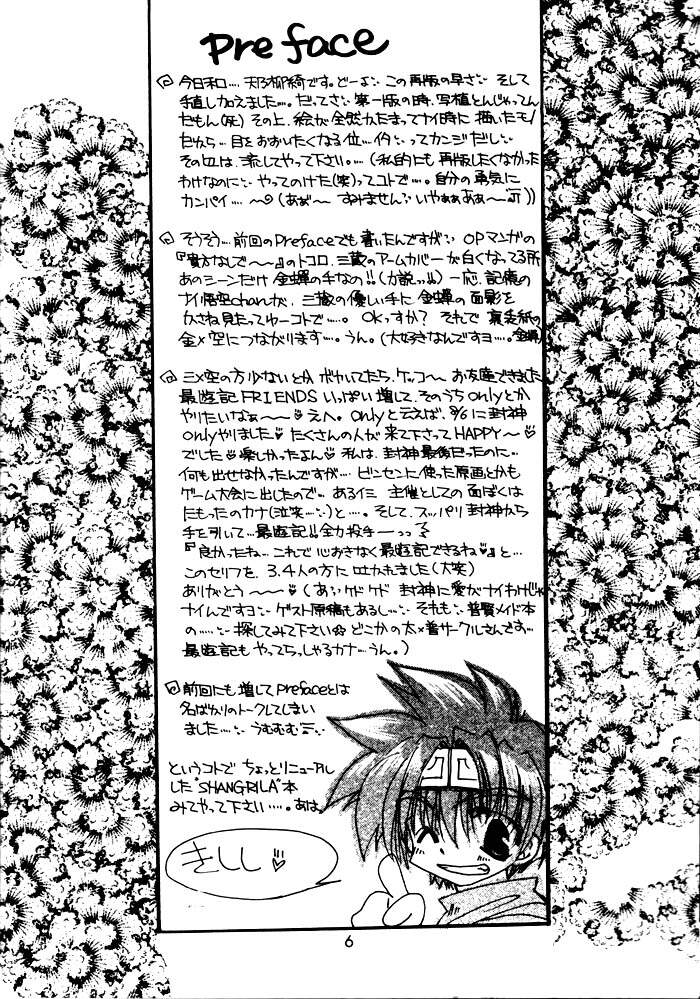 Preface
今日和…. 天乃柳綺です。どーよ この再版の早さ そして
手直し加えました…。だってさ 第一版の時、写植とんじゃってん
だもん(死) その上、絵が全然かたまってナイ時に描いたモノ
だから… 目をおおいたくなる位… 今 ってカンジだし
その辺は、流してやって下さい。…(私的にも再版したくなかった
わけなのに やってのけた(笑)ってコトで…。自分の勇気に
カンパイ… 〜(あぁ〜 すみません いやぁぁあぁ〜))
そうそう…前回のPrefaceでも書いたんですが OPマンガの
『貴方なしで〜〜』のトコロ、三蔵のアームカバーが白くなってる所
あのシーンだけ 金蝉の手なの!!(力説っ!!) 一応、記憶の
ナイ悟空chanが、三蔵の優しい手に 金蝉の面影を
かさね見たってゆーコトで…。OKっすか? それで 裏表紙の
金×空につながります…。うん。(大好きなんですヨ…。金蝉)
三×空の方少ないとか ボヤいてたら、ケッコ〜 お友達できました
最遊記FRIENDS いっぱい増して、そのうちonlyとか
やりたいなぁ〜〜♡えへ。onlyと云えば、8/6に封神
onlyやりました♡ たくさんの人が来て下さってHAPPY〜♡
でした♡楽しかったよん♡ 私は、封神最後だったのに…
何も出せなかったんですが… ビンセンに使った原画とかも
ゲーム大会に出したので… あるイミ 主催としての面ぼくは
たもったのカナ(泣笑…)と…。そして、スッパリ封神から
手を引いて…最遊記!!全力投手ーっっ
『良かったね… これで心おきなく最遊記できるね♡』と…
このセリフを、3.4人の方に吐かれました(大笑)
ありがとう〜〜♡(あ ケドケド 封神に愛がナイわけじゃ
ナイんですヨ ゲスト原稿もあるし… それも 普賢メイド本
の…… 探してみて下さい☆どこかの太×普サークルさんです…
最遊記もやってらっしゃるカナ…うん。)
前回にも増してPrefaceとは
名ばかりのトークしてしまい
ました…。うむむむ
というコトで ちょっとリニューアル
した "SHANGRILA"本
みてやって下さい…。あは。
きししし♡
6